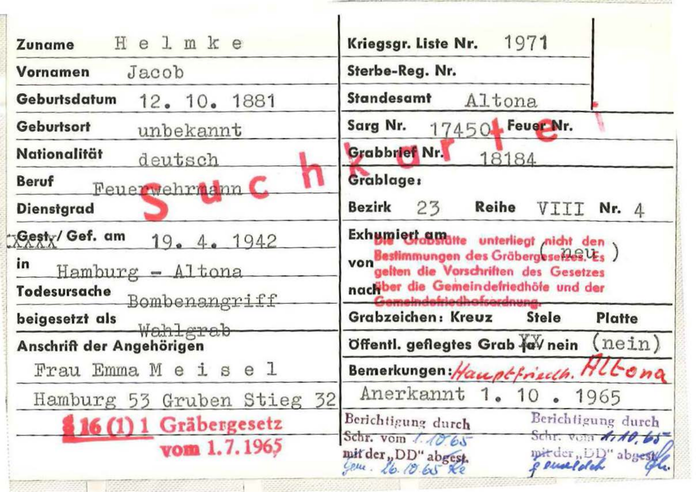 Zuname Helmke
Vornamen Jacob
Geburtsdatum 12. 10. 1881
Geburtsort unbekannt
Nationalität deutsch
Beruf Feuerwehrmann
Dienstgrad
Gest./Gef. am 19. 4. 1942
in Hamburg - Altona
Todesursache Bombenangriff
beigesetzt als Wahlgrab
Anschrift der Angehörigen
Frau Emma Meisel
Hamburg 53 Gruben Stieg 32
§ 16 (1) 1 Gräbergesetz
vom 1.7.1965
Suchkartei
Kriegsgr. Liste Nr. 1971
Sterbe-Reg. Nr.
Standesamt Altona
Sarg Nr. 17450 Feuer Nr.
Grabbrief Nr. 18184
Grablage:
Bezirk 23 Reihe VIII Nr. 4
Exhumiert am
von (neu)
nach
Die Grabstätte unterliegt nicht den
Bestimmungen des Gräbergesetzes. Es
gelten die Vorschriften des Gesetzes
über die Gemeindefriedhöfe und der
Gemeindefriedhofsordnung.
Grabzeichen: Kreuz Stele Platte
Öffentl. gepflegtes Grab ja/nein (nein)
Bemerkungen: Hauptfriedh. Altona
Anerkannt 1. 10. 1965
Berichtigung durch
Schr. vom 1.10.65
mit der „DD" abgest.
26.10.65
Berichtigung durch
Schr. vom 1.10.65
mit der „DD" abgest.